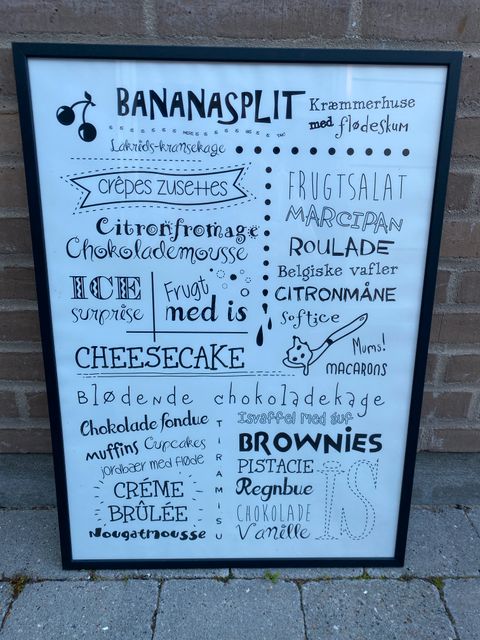 BANANASPLIT
Kræmmerhuse
med flødeskum
Lakrids-kransekage
crêpes zusettes
Citronfromage
Chokolademousse
ICE
surprise
Frugt
med is
CHEESECAKE
FRUGTSALAT
MARCIPAN
ROULADE
Belgiske vafler
CITRONMÅNE
Softice
Mums!
MACARONS
Blødende chokoladekage
Chokolade fondue
muffins Cupcakes
jordbær med fløde
CRÉME
BRÛLÉE
Nougatmousse
TIRAMISU
Isvaffel med guf
BROWNIES
PISTACIE
Regnbue
CHOKOLADE
Vanille
IS